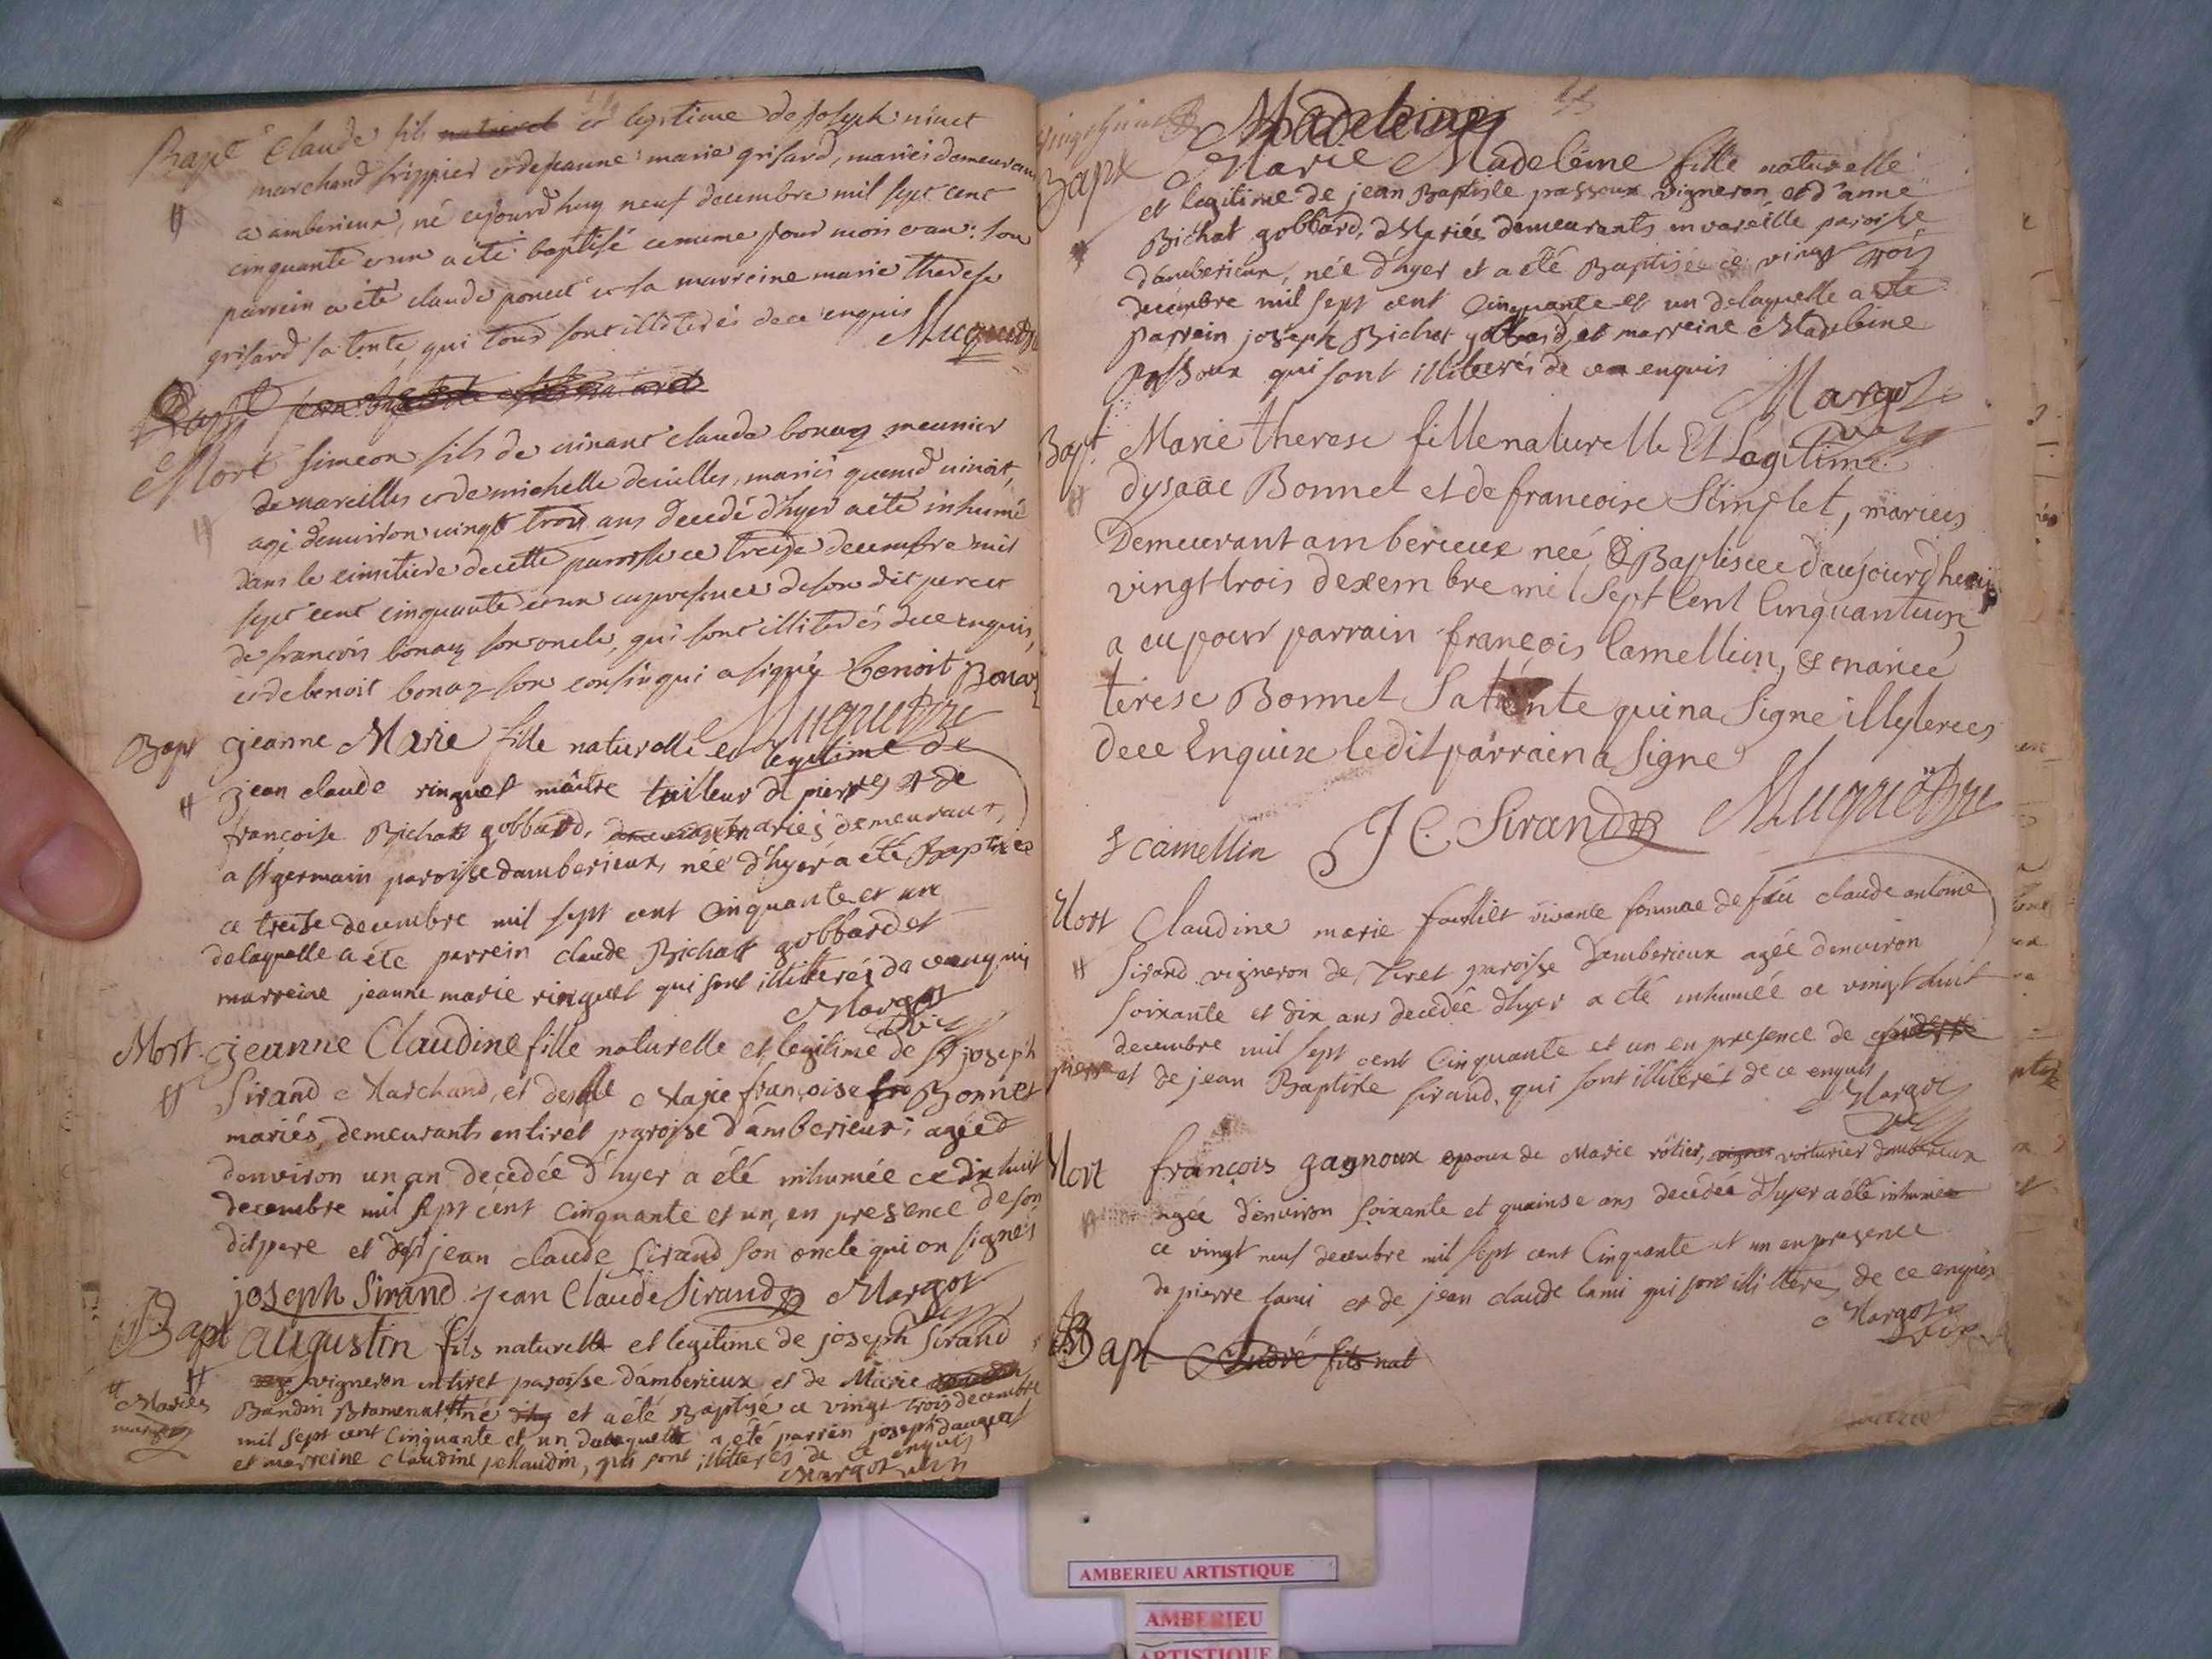 Bapt Claude fils naturel et legitime de Joseph ninet
marchand frippier et de jeanne marie grisard, mariés demeurans
a amberieux, né cejourd'huy neuf decembre mil sept cent
cinquante et un a été baptisé le meme jour mois et an: son
parrein a été claude poncet et sa marreine marie therese
grisard sa tente, qui tous sont illiterés de ce enquis
Mort Simeon fils de vivant claude bonaz meunier
de vareilles et de michelle deville, mariés quand vivoit,
agé d'environ vingt trois ans decedé d'hyer a été inhumé
dans le cimetiere de cette paroisse ce treize decembre mil
sept cent cinquante et un en presence de son dit pere et
de francois bonaz son oncle, qui sont illiterés de ce enquis,
et de benoit bonaz son cousin qui a signé benoit Bonaz
Bapt jeanne Marie fille naturelle et legitime de
jean claude ringuet maitre tailleur de pierres et de
francoise Bichatt gobbard, mariés demeurant,
a st germain paroisse damberieux, née d'hyer a été Baptisée
ce treise decembre mil sept cent Cinquante et un
delaquelle a été parrein claude Bichatt gobbard et
marreine jeanne marie ringuet qui sont illitterés de ce enquis
Margot
vic
Mort jeanne Claudine fille naturelle et legitime de joseph
Sirand Marchand, et de Marie françoise Bonnet
mariés, demeurants entiret paroisse d'amberieux; agée
d'environ un an decedée d'hyer a été inhumée ce dix huit
decembre mil sept cent Cinquante et un, en presence de son
dit pere et de jean claude Sirand son oncle qui on signés
joseph Sirand jean Claude Sirand Margot
Bapt augustin fils naturel et legitime de joseph Sirand
vigneron entiret paroisse d'amberieux et de Marie
Mariés
Bandin né et a été Baptisé ce vingt trois decembre
mil sept cent Cinquante et un duquel a été parrein joseph
et marreine Claudine pellaudin, qui sont illiterés de ce enquis
Margot vic
Madeleine
Bapt Marie Madeleine fille naturelle
et legitime de jean Baptiste passoux vigneron et d'anne
Bichat gobbard, Mariés demeurants en vareille paroisse
d'amberieux, née d'hyer et a été Baptisée ce vingt trois
decembre mil sept cent Cinquante et un delaquelle a été
parrein joseph Bichat gobbard, et marreine Madeleine
passoux qui sont illiterés de ce enquis
Margot
vic
Bapt Marie therese fille naturelle Et Legitime
dysaac Bonnet et de francoise Stinglet, mariees
Demeurant amberieux neé & Baptisee daujourdheui
vingt trois dexembre mil Sept Cent Cinquanteun
a eu pour parrain françois Camellin, & mariee
terese Bonnet Sa tente qui na Signe illyterees
de ce Enquix ledit parrain a Signe
f camellin J C. Sirand
Mort Claudine marie vivante femme de feu claude antoine
Sirand vigneron de tiret paroisse d'amberieux agée d'environ
soixante et dix ans decedée d'hyer a été inhumée ce vingt huit
decembre mil sept cent Cinquante et un en presence de
pierre et de jean Baptiste sirand, qui sont illiterés de ce enquis
Margot
vic
Mort françois gagnoux epoux de Marie rôtier, voiturier damberieux
agée d'environ soixante et quainse ans decedée d'hyer a été inhumée
ce vingt neuf decembre mil sept cent Cinquante et un en presence
de pierre lami et de jean claude lami qui sont illittere de ce enquis
Margot
vic
Bapt André fils nat
AMBERIEU ARTISTIQUE
AMBERIEU
ARTISTIQUE